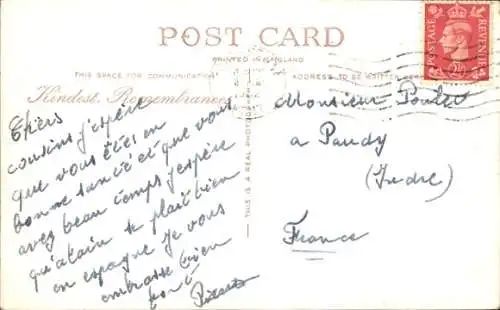 POST CARD
PRINTED IN ENGLAND
THIS SPACE FOR COMMUNICATION
ADDRESS TO BE WRITTEN HERE
Kindest Remembrances
POSTAGE REVENUE
THIS IS A REAL PHOTOGRAPH
cousins j'espère
que vous êtes en
bonne santé et que vous
avez beau temps j'espère
qu'alain se plait bien
en espagne je vous
embrasse bien
fort
Monsieur
a Paudy
(Indre)
France